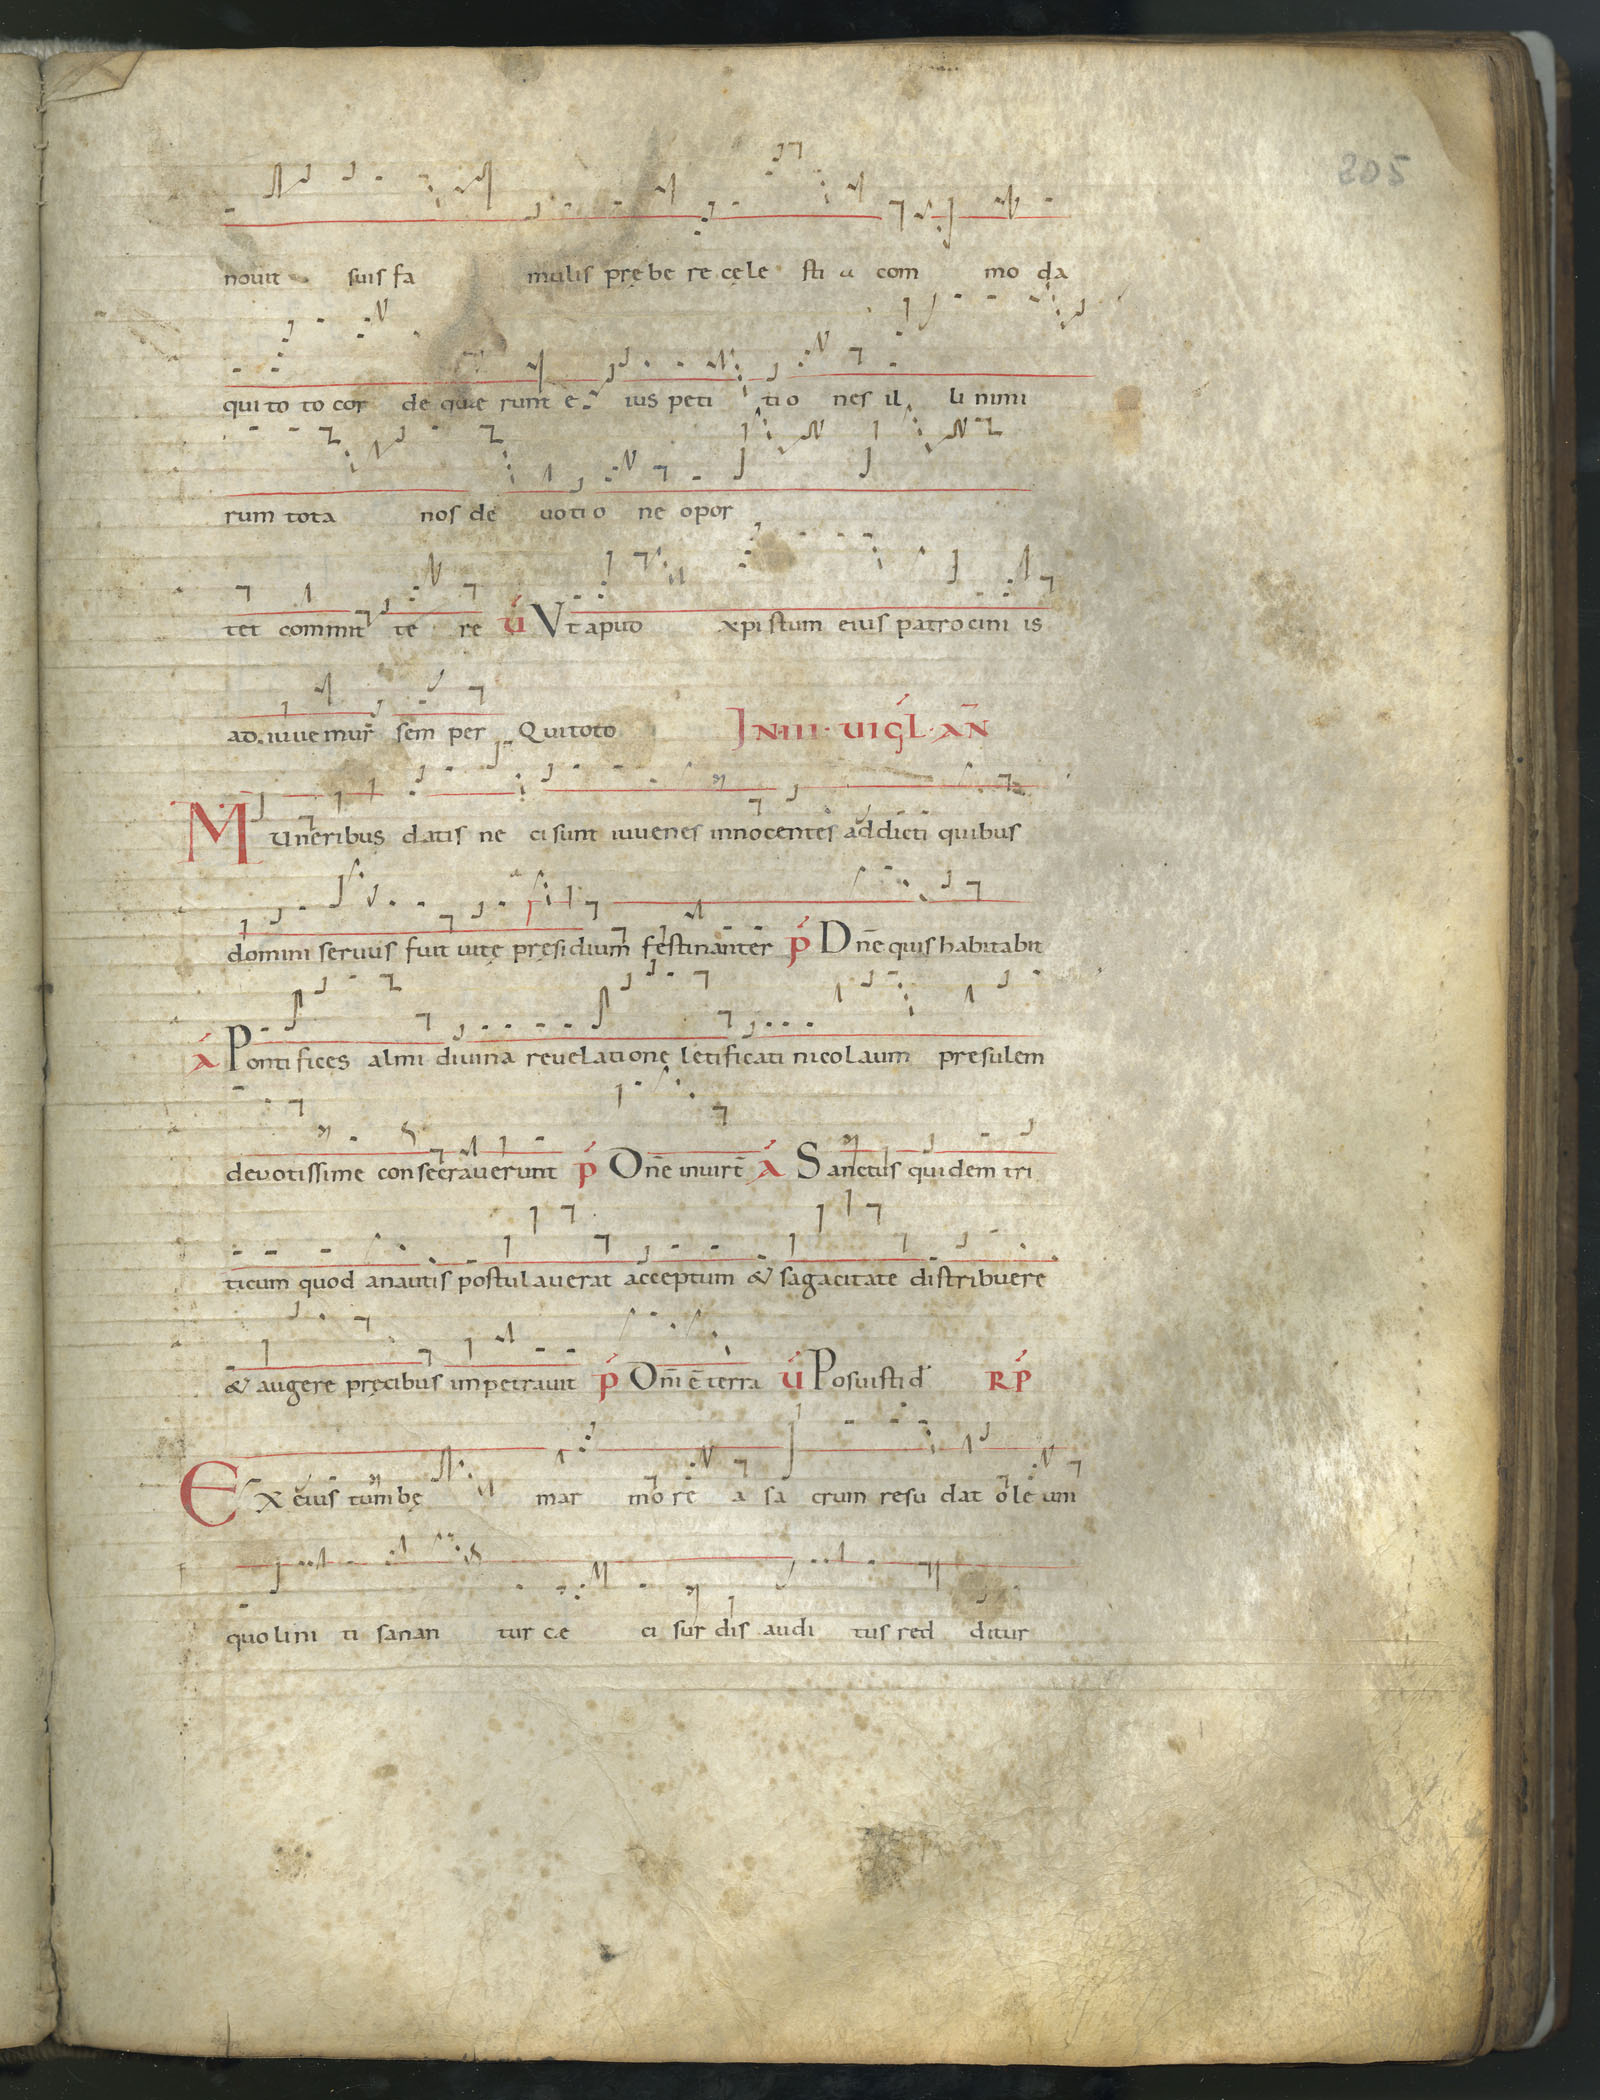 205
nouit suis fa mulis prębe re cęle sti a com mo da
qui to to cor de quae runt e ius peti tio nes il li nimi
rum tota nos de uotio ne opor
tet commit te re ú Vt apud xpistum eius patrocini is
ad iuuemur sem per Qui toto IN·III·UIGL·AN̄
Muneribus datis ne ci sunt iuuenes innocentes addicti quibus
domini seruus fuit uitę pręsidium festinanter p̄ Dn̄e quis habitabit
á Pontifices almi diuina reuelatione lętificati nicolaum presulem
deuotissime consecrauerunt p̄ Dn̄e in uirt̄ á Sanctus quidem tri
ticum quod a nautis postulauerat acceptum & sagacitate distribuere
& augere pręcibus impetrauit p̄ Dn̄i ē terra ú Posuisti d̄ RP
Ex eius tumbę mar mo re a sa crum resu dat oleum
quo lini ti sanan tur cæ ci sur dis audi tus red ditur